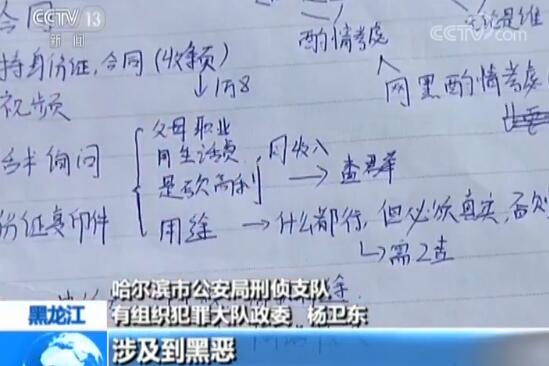 CCTV 13
新闻
CCTV.com
合同
酌情考虑
持身份证,合同(收条)
↓1万8
网黑酌情考虑
视频
父母职业
月生活费
月收入
是否高利
用途 → 什么都行,但必须真实,否则
份证复印件
↳需2查
哈尔滨市公安局刑侦支队
黑龙江
有组织犯罪大队政委 杨卫东
涉及到黑恶